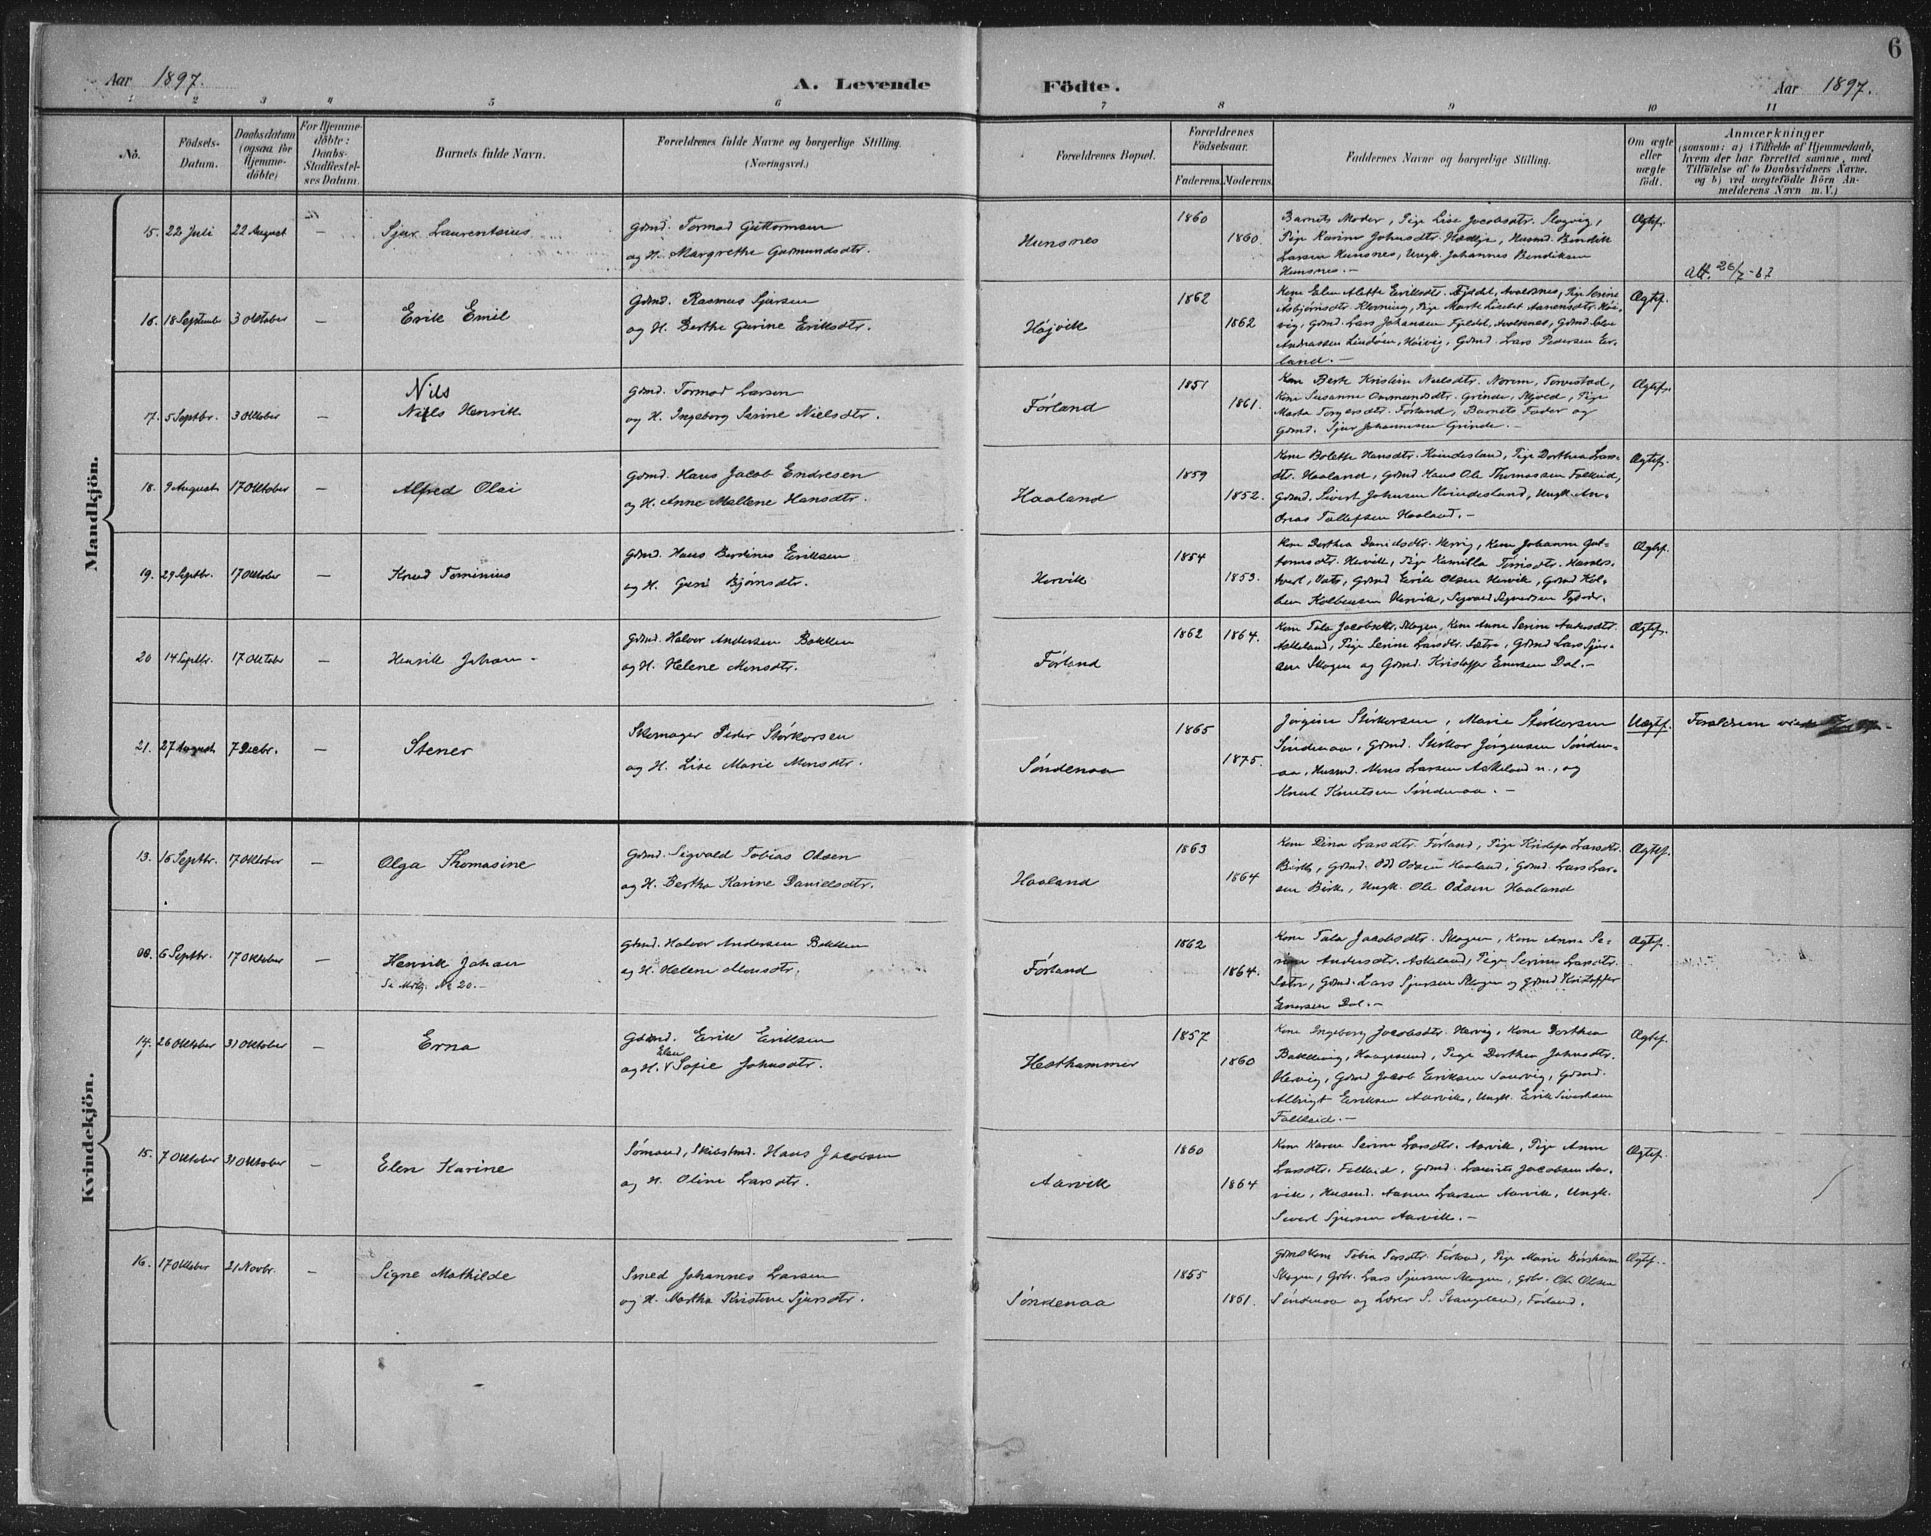 6
Aar 1897. A. Levende Födte. Aar 1897.
1 2 3 4 5 6 7 8 9 10 11
No.
Födsels-Datum.
Daabsdatum (ogsaa for Hjemme-döbte)
For Hjemme-döbte: Daabs-Stadfæstel-ses Datum.
Barnets fulde Navn.
Forældrenes fulde Navne og borgerlige Stilling.
(Næringsvei.)
Forældrenes Bopæl.
Forældrenes Födselsaar.
Faderens. Moderens.
Faddernes Navne og borgerlige Stilling.
Om ægte eller uægte födt.
Anmærkninger
(saasom: a) i Tilfælde af Hjemmedaab, hvem der har forrettet samme, med Tilföielse af to Daabsvidners Navne. og b) ved uægtefödte Börn An-melderens Navn m. V.)
Mandkjön.
15. 22 Juli 22 August – Sjur Laurentsius
Gdmd. Tormod Guttormsen
og H. Margrethe Gudmundsdtr.
Hunsnes 1860 1860.
Barnets Moder, Pige Lise Jacobsdtr. Slogvig,
Pige Karine Johnsdtr. , Husmd. Bendik
Larsen Hunsnes, Ungk. Johannes Bendiksen
Hunsnes. –
Ægtef.
Att. 26/7-67
16. 18 September 3 Oktober – Erik Emil
Gdmd. Rasmus Sjursen
og H. Berthe Gurine Eriksdtr.
Højvik 1862 1862
Kone Elen Alette Eriksdtr. Fjeldet, Avaldsnes, Pige Serine
Asbjørnsdtr. , Pige Marte Lisebet Aanensdtr. Høi-
vig, Gdmd. Lars Johansen Fjeldet, Avaldsnes, Gdmd.
Andreassen Lindøen, Høivig, Gdmd. Lars Pedersen Er-
land. –
Ægtef.
17. 5 Septbr. 3 Oktober – Nils
Niels Henrik
Gdmd. Tormod Larsen
og H. Ingeborg Serine Nielsdtr.
Førland 1851 1861.
Kone Berte Kristine Nielsdtr. Norem, Torvestad,
Kone Susanne Omundsdtr. Grinde, Skjold, Pige
Marta Torgersdtr. Førland, Barnets Fader og
Gdmd. Sjur Johannesen Grinde. –
Ægtef.
18. 9 August 17 Oktober – Alfred Olai
Gdmd. Hans Jacob Endresen
og H. Anne Mallene Hansdtr.
Haaland 1859 1852.
Kone Bolette Hansdtr. Kvindesland, Pige Dorthea Lars-
dtr. Haaland, Gdmd Hans Ole Thomassen Falkeid,
Gdmd. Sivert Johnsen Kvindesland, Ungk. An-
dreas Tollefsen Haaland. –
Ægtef.
19. 29 Septbr. 17 Oktober – Knud Tominius
Gdmd. Hans Berdines Eriksen
og H. Guri Bjørnsdtr.
Hervik 1854 1853.
Kone Berthea Danielsdtr. Hervig, Kone Johanne Gut-
tormsdtr. Hervik, Pige Kamilla Tønnesdtr.
, Vats, Gdmd Erik Olsen Hervik, Gdmd Kol-
ben Kolbensen Hervik,
Ægtef.
20 14 Septbr. 17 Oktober – Henrik Johan –
Gdmd. Halvor Andersen Bakken
og H. Helene Monsdtr.
Førland 1862 1864.
Kone Tala Jacobsdtr. Skogen, Kone Anne Serine Andersdtr.
Askeland, Pige Serine Larsdtr. Sætre, Gdmd Lars Sjur-
sen Skogen og Gdmd. Kristoffer Enersen Dal. –
Ægtef.
21. 27 August 7 Decbr. – Stener
Skomager Peder Størkorsen
og H. Lise Marie Monsdtr.
Søndenaa 1865 1875.
Jørgine Størkorsen, Marie Størkorsen
Søndenaa, Gdmd. Størkor Jørgensen Sønden-
aa, Husmd. Mons Larsen Askeland n., og
Knut Knutsen Søndenaa. –
Uægtef.
Forældrene viede
Kvindekjön.
13. 16 Septbr. 17 Oktober – Olga Thomasine
Gdmd. Sigvald Tobias Odsen
og H. Bertha Karine Danielsdtr.
Haaland 1863 1864
Kone Dina Larsdtr. Førland, Pige Larsdtr.
Birke, Gdmd. Od Odsen Haaland, Gdmd. Lars Lar-
sen Birke, Ungk. Ole Odsen Haaland
Ægtef.
00. 6 Septbr. 17 Oktober – Henrik Johan
Se Mdkj. No 20. –
Gdmd. Halvor Andersen Bakken
og H. Helene Monsdtr.
Førland 1862 1864.
Kone Tala Jacobsdtr. Skogen, Kone Anne Se-
rine Andersdtr. Askeland, Pige Serine Larsdtr.
Sætre, Gdmd. Lars Sjursen Skogen og Gdmd Kristoffer
Enersen Dal. –
Ægtef.
14. 26 Oktober 31 Oktober – Erna
Gdmd. Erik Eriksen
Elen
og H. Sofie Johnsdtr.
Hesthammer 1857 1860
Kone Ingeborg Jacobsdtr. Hervig, Kone Dorthea
Bakkevig, Haugesund, Pige Dorthea Johnsdtr.
Hervig, Gdmd Jacob Eriksen , Gdmd.
Albrigt Eriksen Aarvik, Ungk. Erik Sivertsen
Falkeid. –
Ægtef.
15. 7 Oktober 31 Oktober – Elen Karine
Sømand, Skibstmd. Hans Jacobsen
og H. Oline Larsdtr.
Aarvik 1860 1864
Kone Karen Serine Larsdtr. Aarvik, Pige Anne
Larsdtr. Falkeid, Gdmd. Laurits Jacobsen Aar-
vik, Husmd. Aanen Larsen Aarvik, Ungk.
Sivert Sjursen Aarvik. –
Ægtef.
16. 17 Oktober 21 Novbr. – Signe Mathilde
Smed Johannes Larsen
og H. Martha Kristine Sjursdtr.
Søndenaa 1855 1861.
Gdmdskone Tobia Førland, Pige Marie
Skogen, Gbr. Lars Sjursen Skogen, Gbr. Ole Olsen
Søndenaa og Lærer S. Stangeland, Førland.
Ægtef.